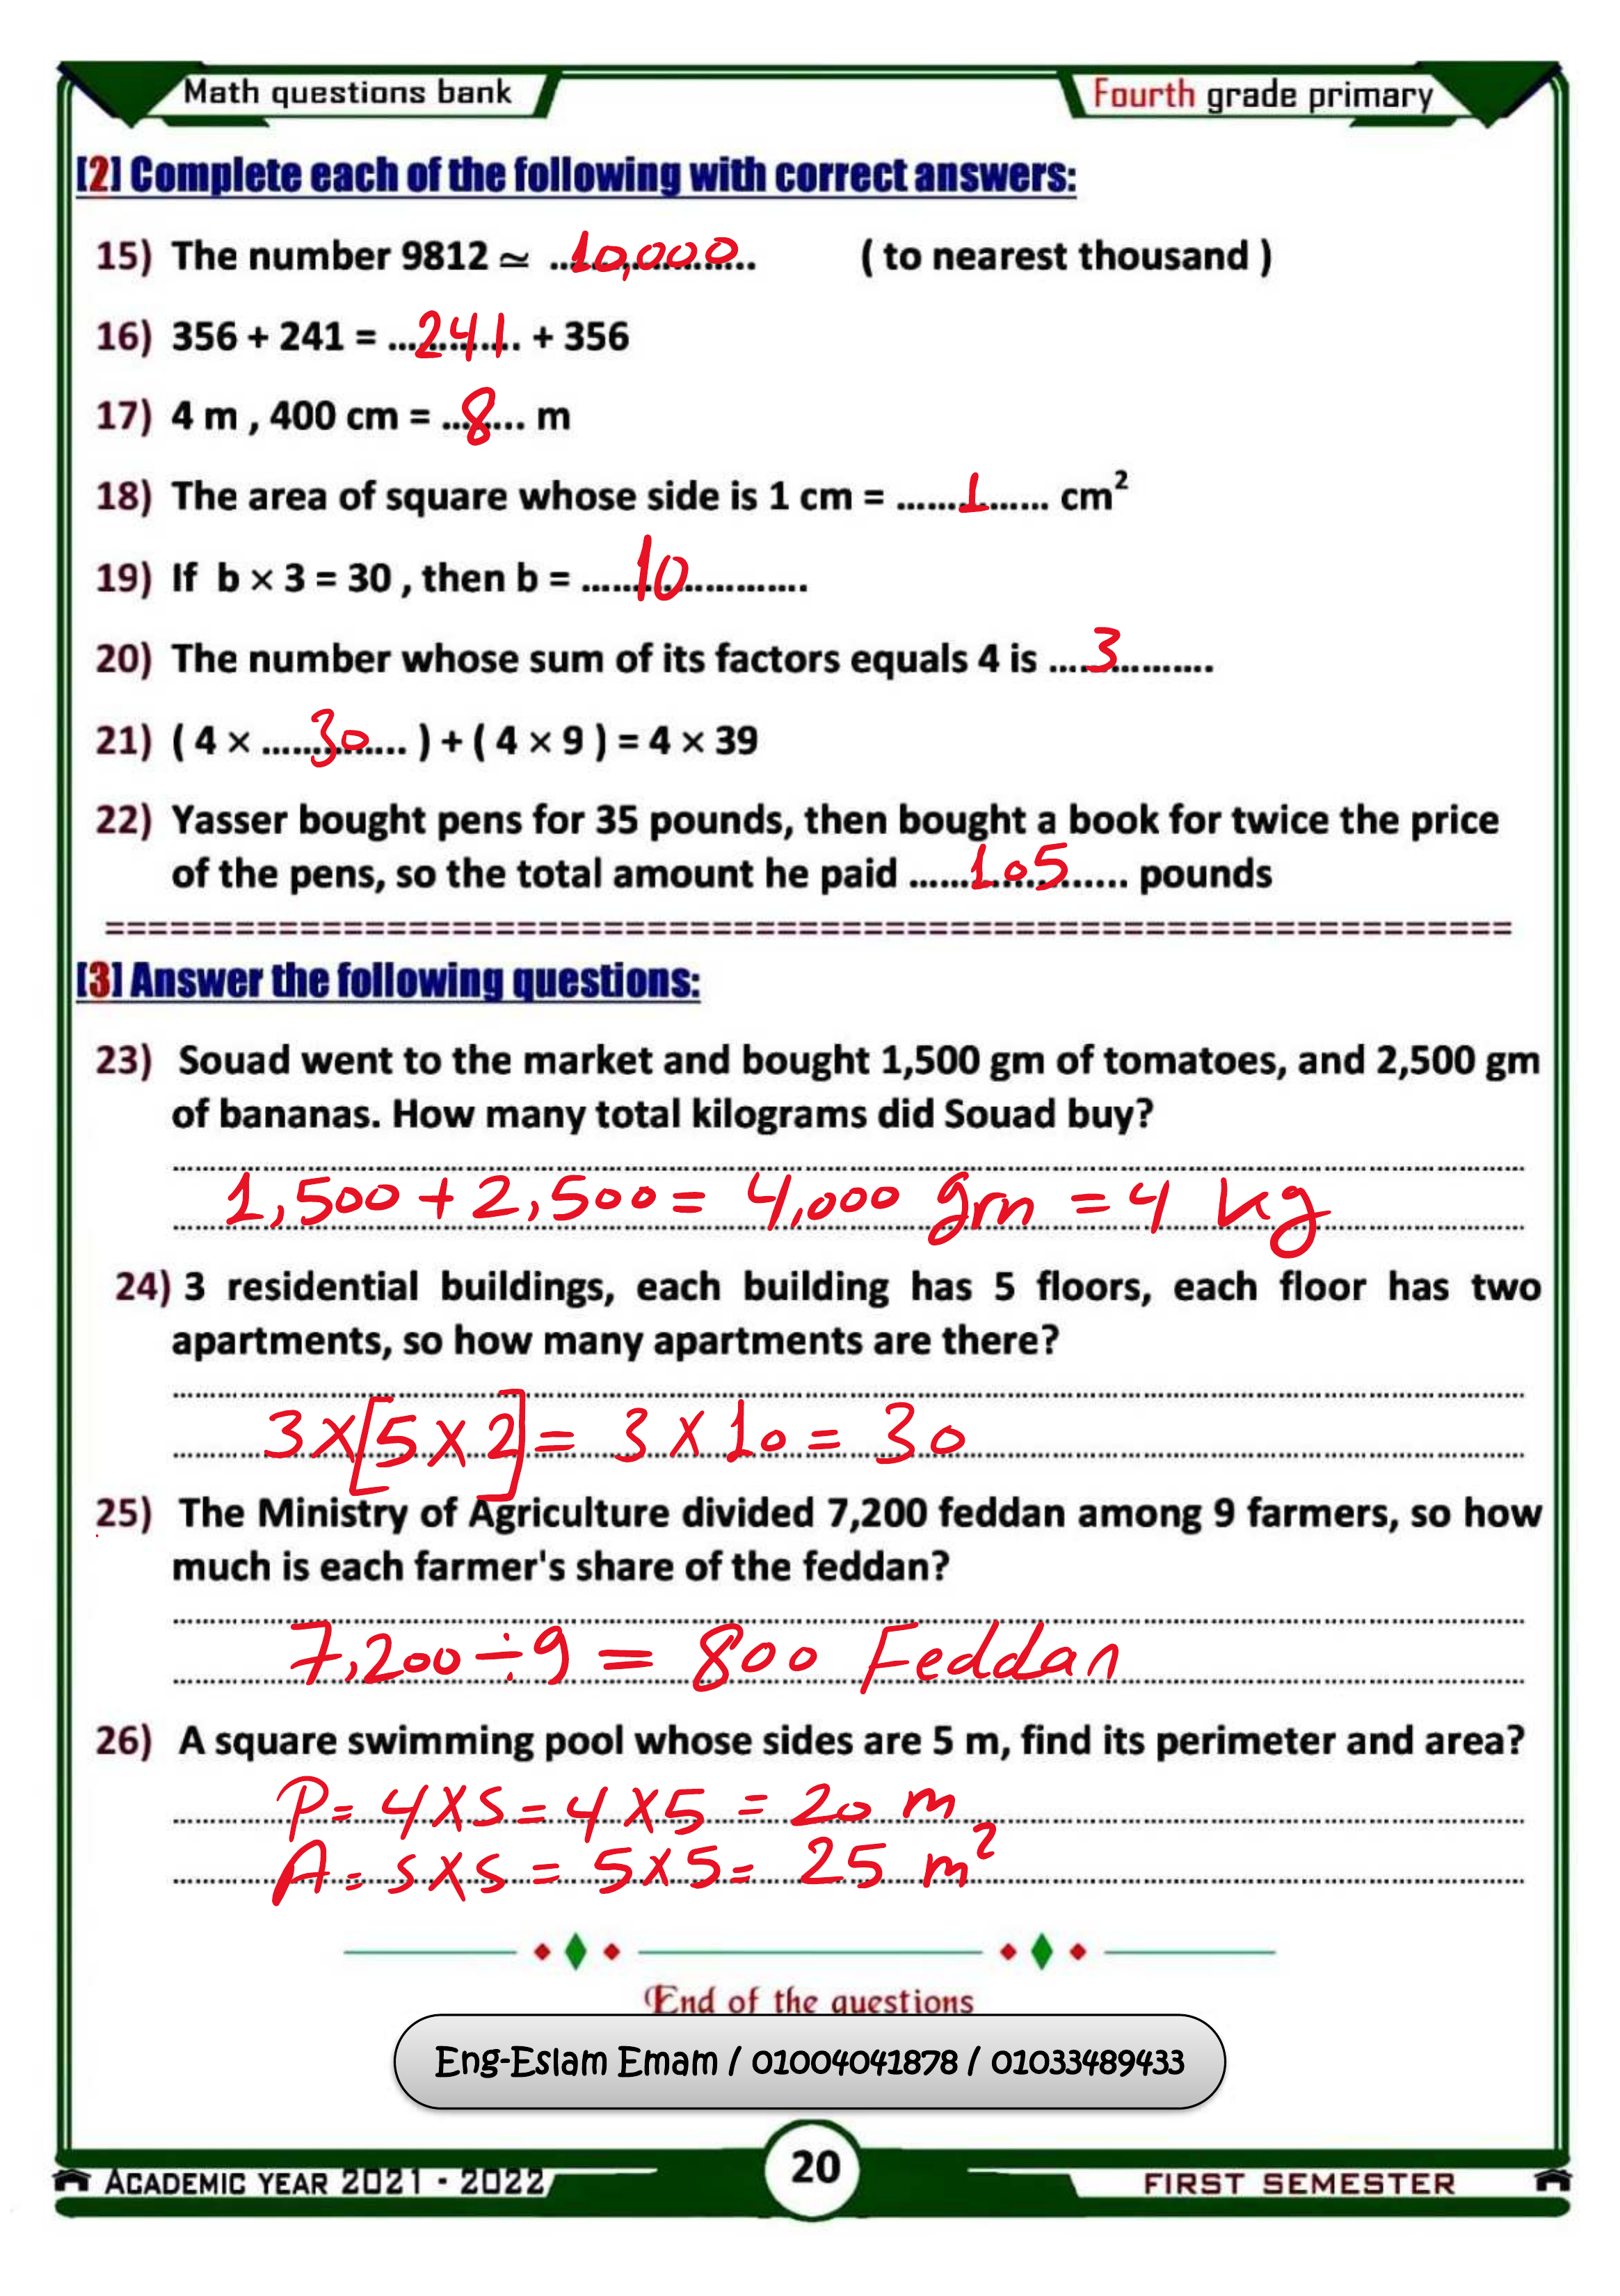 Math questions bank
Fourth grade primary
[2] Complete each of the following with correct answers:
15) The number 9812 ≃ ...10,000... ( to nearest thousand )
16) 356 + 241 = ...241... + 356
17) 4 m , 400 cm = ...8... m
18) The area of square whose side is 1 cm = ...1... cm²
19) If b × 3 = 30 , then b = ...10...
20) The number whose sum of its factors equals 4 is ...3...
21) ( 4 × ...30... ) + ( 4 × 9 ) = 4 × 39
22) Yasser bought pens for 35 pounds, then bought a book for twice the price
of the pens, so the total amount he paid ...105... pounds
[3] Answer the following questions:
23) Souad went to the market and bought 1,500 gm of tomatoes, and 2,500 gm
of bananas. How many total kilograms did Souad buy?
1,500 + 2,500 = 4,000 gm = 4 kg
24) 3 residential buildings, each building has 5 floors, each floor has two
apartments, so how many apartments are there?
3 × [5 × 2] = 3 × 10 = 30
25) The Ministry of Agriculture divided 7,200 feddan among 9 farmers, so how
much is each farmer's share of the feddan?
7,200 ÷ 9 = 800 Feddan
26) A square swimming pool whose sides are 5 m, find its perimeter and area?
P = 4 × S = 4 × 5 = 20 m
A = S × S = 5 × 5 = 25 m²
End of the questions
Eng-Eslam Emam / 01004041878 / 01033489433
ACADEMIC YEAR 2021 - 2022
20
FIRST SEMESTER